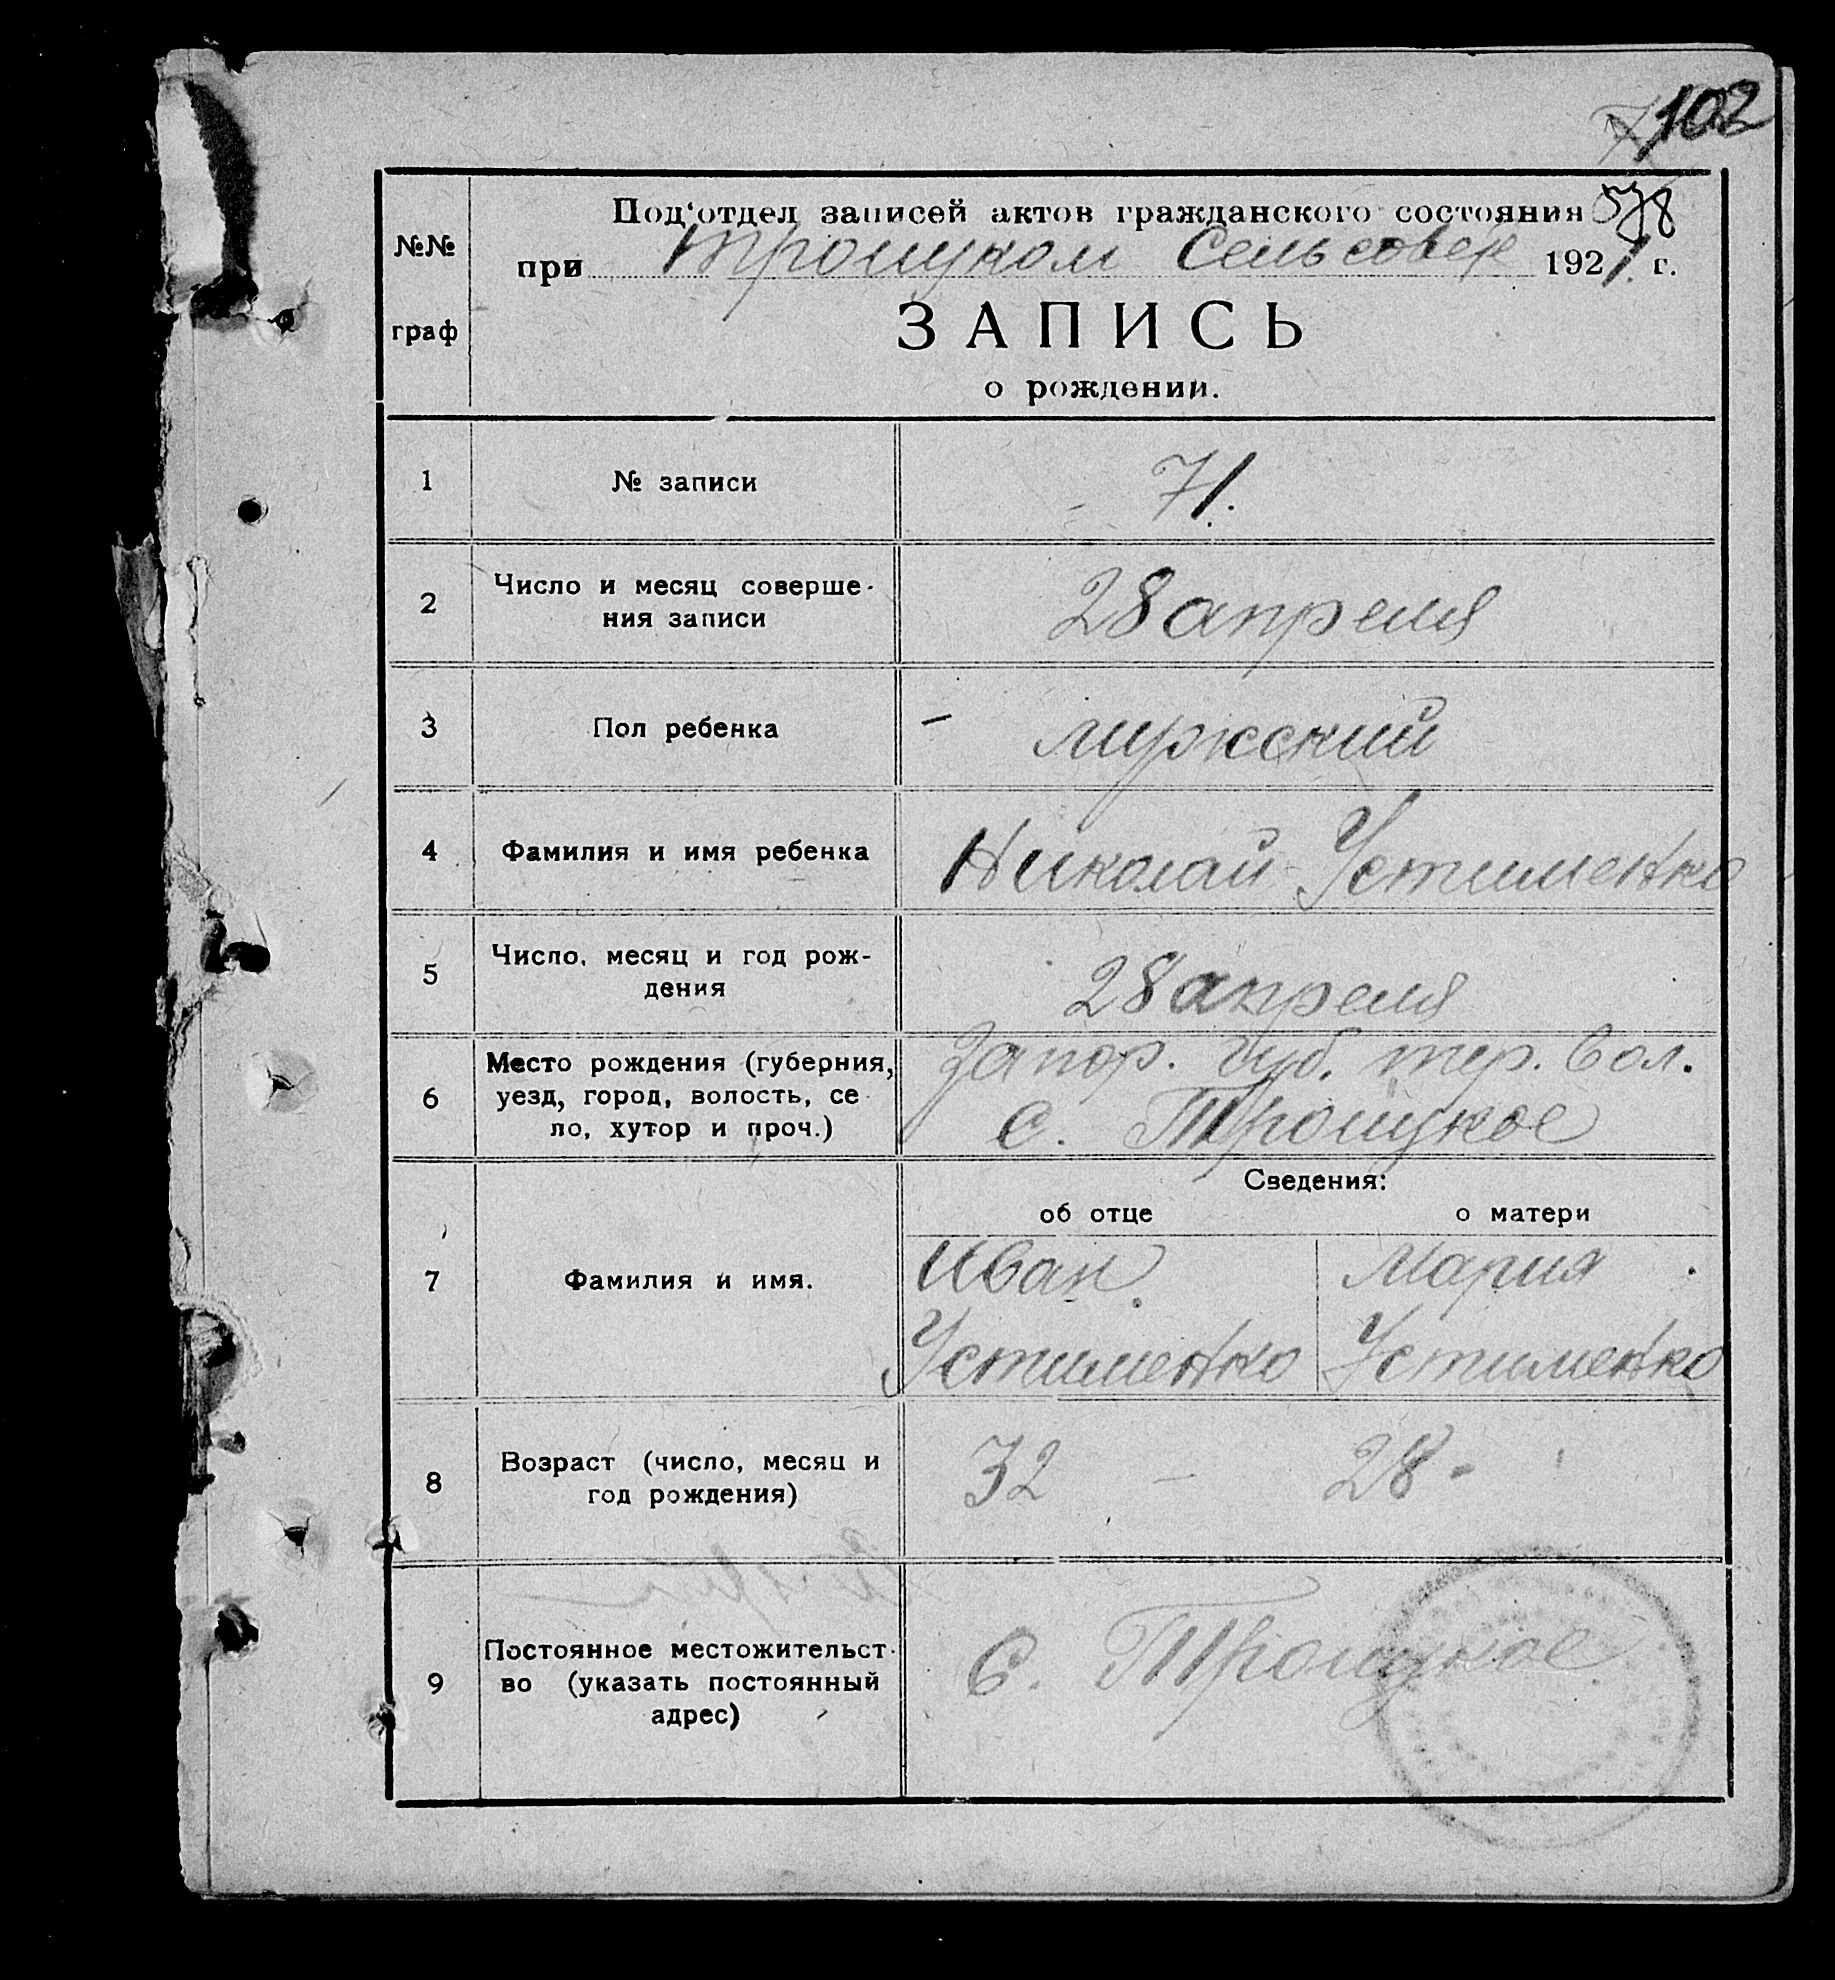 102
Под‘отдел записей актов гражданского состояния
при Троицком Сельсовете 1921 г.
№№
граф
ЗАПИСЬ
о рождении.
1 № записи 71.
2 Число и месяц соверше-
ния записи 28 апреля
3 Пол ребенка мужский
4 Фамилия и имя ребенка Николай Устименко
5 Число, месяц и год рож-
дения 28 апреля
6 Место рождения (губерния, Запор. губ. тер. вол.
уезд, город, волость, се
ло, хутор и проч.) с. Троицкое
Сведения:
об отце о матери
7 Фамилия и имя. Иван Мария
Устименко Устименко
8 Возраст (число, месяц и
год рождения) 32 — 28 -
9 Постоянное местожительст-
во (указать постоянный
адрес) С. Троицкое